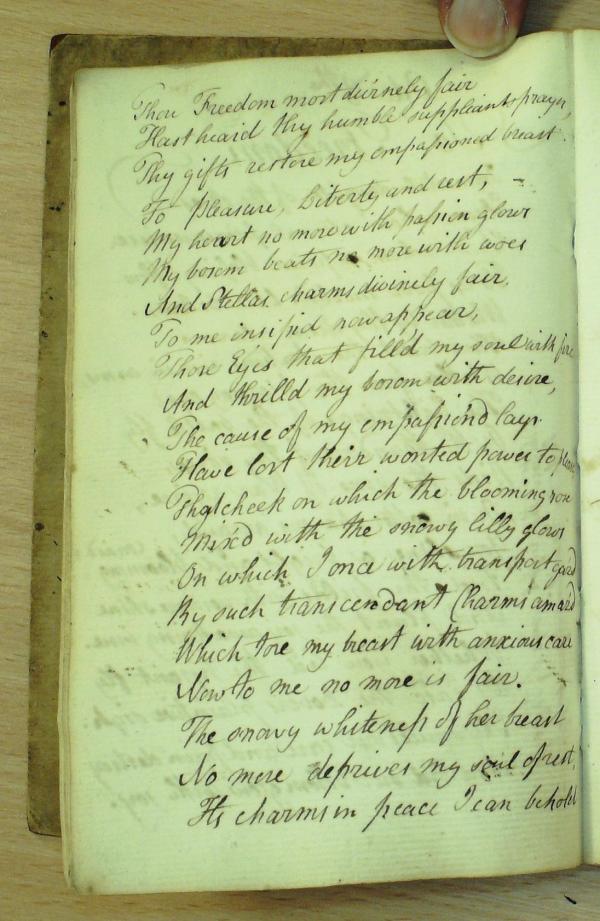 Thou Freedom most divinely fair
Hast heard thy humble suppliants prayer,
Thy gifts restore my empassioned breast.
To pleasure, Liberty and rest, –
My heart no more with passion glows
My bosom beats no more with woes
And Stellas charms divinely fair,
To me insipid now appear,
Those Eyes that fill'd my soul with fire
And thrilld my bosom with desire,
The cause of my empassion'd lays
Have lost their wonted power to please
That cheek on which the blooming rose
Mix'd with the snowy lilly glows
On which I once with transport gazd
By such transcendant Charms amazd
Which tore my breast with anxious care
Now to me no more is fair.
The snowy whiteness of her breast
No more deprives my soul of rest,
Its charms in peace I can behold